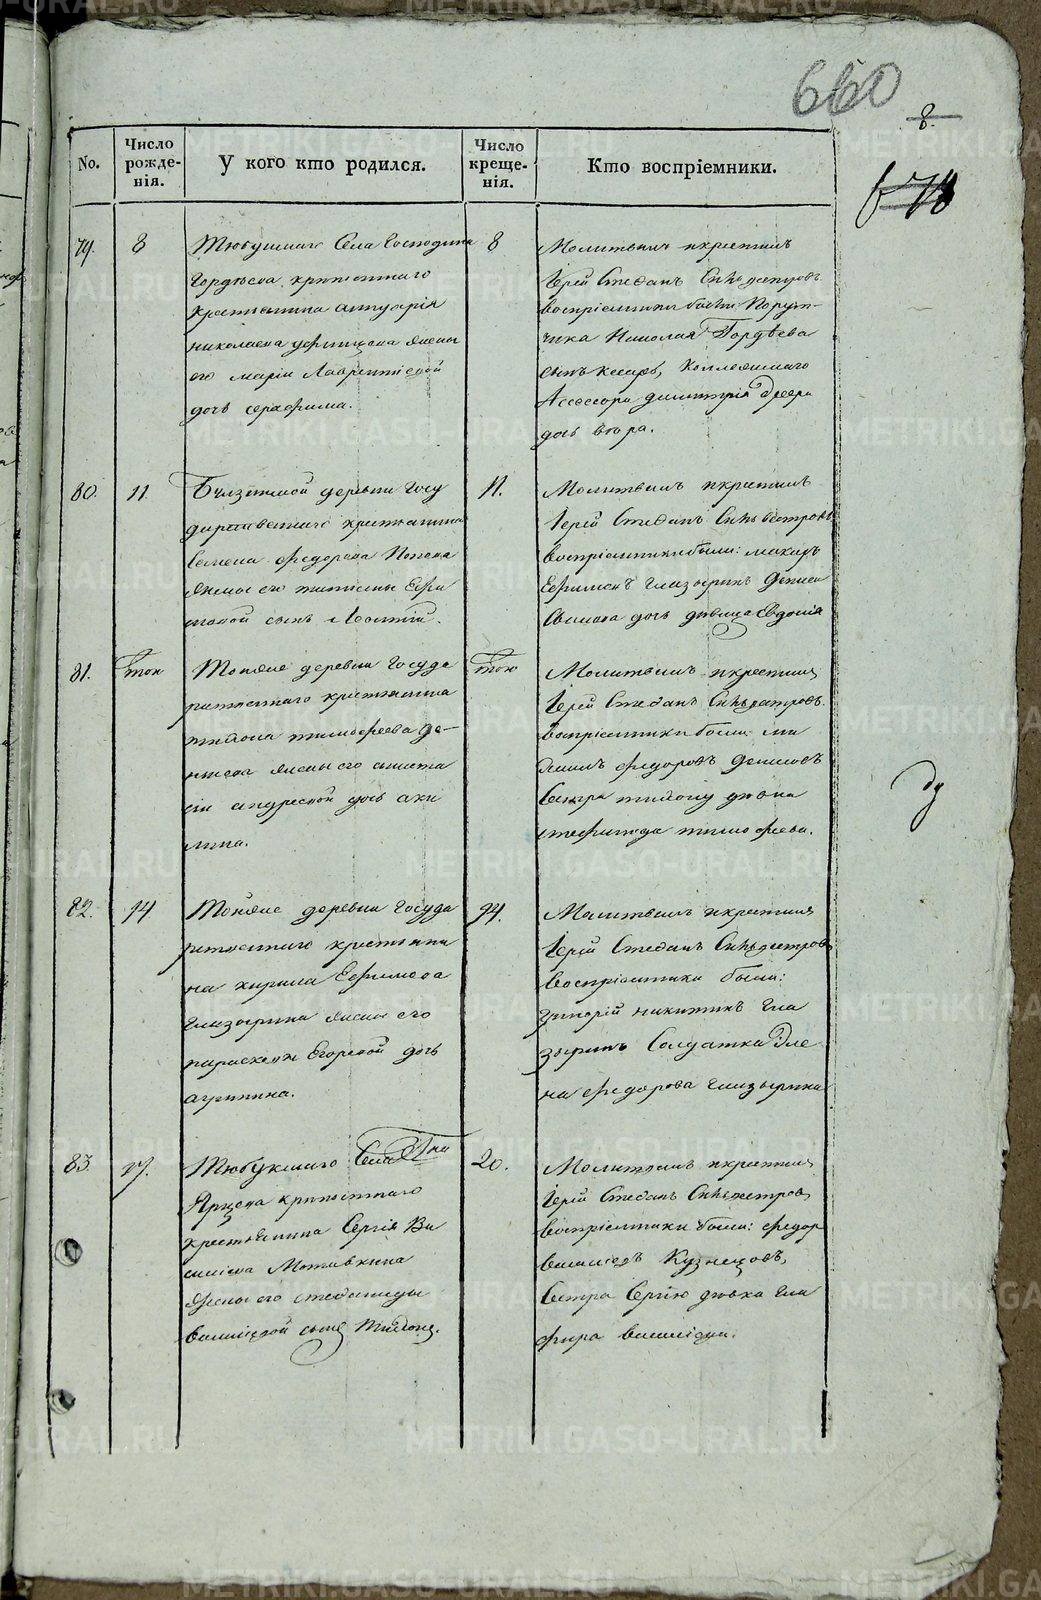 660
8.
No.
Число рожде-нія.
У кого кто родился.
Число креще-нія.
Кто воспріемники.
79.
8
Тюбукскаго Села Господина
Гордѣева крѣпостнаго
крестьянина
николаева жены
его маріи Лаврентіевой
дочь серафима.
8
Молитвилъ икрестилъ
Іерей Стефанъ Сильвестровъ
воспріемники были Поручи-
чика Николая Гордѣева
сынъ кесарь, Коллежскаго
Асессора димитрія
дочь вѣра.
80.
11
деревни Госу
дарственнаго крестьянина
Семена федорова Попова
жены его татьяны Ефи
мовой сынъ Леонтій.
11.
Молитвилъ икрестилъ
Іерей Стефанъ Сильвестровъ
воспріемники были: макаръ
Ефимовъ глазыринъ
дочь дѣвица Евдокія
81.
Тож
Тойже деревни Госуда
рственнаго крестьянина
тихона тимофеева де-
нисова жены его анаста
сіи андреевой дочь аки
лина.
Тож
Молитвилъ икрестилъ
Іерей Стефанъ Сильвестровъ.
воспріемники были: ми
хаилъ федоровъ денисовъ
Сестра тихону дѣвка
стефанида тимофеева.
82.
14
Тойже деревни Госуда
рственнаго крестьяни
на кирила Ефимова
глазырина жены его
параскевы Егоровой дочь
агрипина.
14.
Молитвилъ икрестилъ
Іерей Стефанъ Сильвестровъ
воспріемники были:
григорій никитинъ гла
зыринъ Солдатка Еле
на федорова глазырина
83.
17.
Тюбукскаго Села Гна
Ярцова крѣпостнаго
крестьянина Сергія Ва
силіева Мотавкина
Жены его стефаниды
василіевой сынъ Тихонъ.
20.
Молитвилъ икрестилъ
Іерей Стефанъ Сильвестровъ
воспріемники были: федоръ
василіевъ Кузнецовъ,
Сестра Сергію дѣвка гла
фира василіева.
METRIKI.GASO-URAL.RU